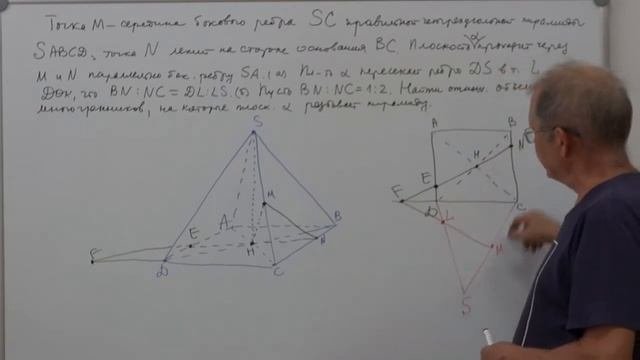 Точка M – середина бокового ребра SC правильной четырёхугольной пирамиды
SABCD, точка N лежит на стороне основания BC. Плоскость α проходит через
M и N параллельно бок. ребру SA. (а) Пл-ть α пересекает ребро DS в т. L
Док, что BN:NC = DL:LS. (б) Пусть BN:NC = 1:2. Найти отнош. объё
многогранников, на которые плоск. α разбивает пирамиду.
S
M
A
B
F
E
H
N
D
C
A
B
H
N
E
F
D
C
L
M
S